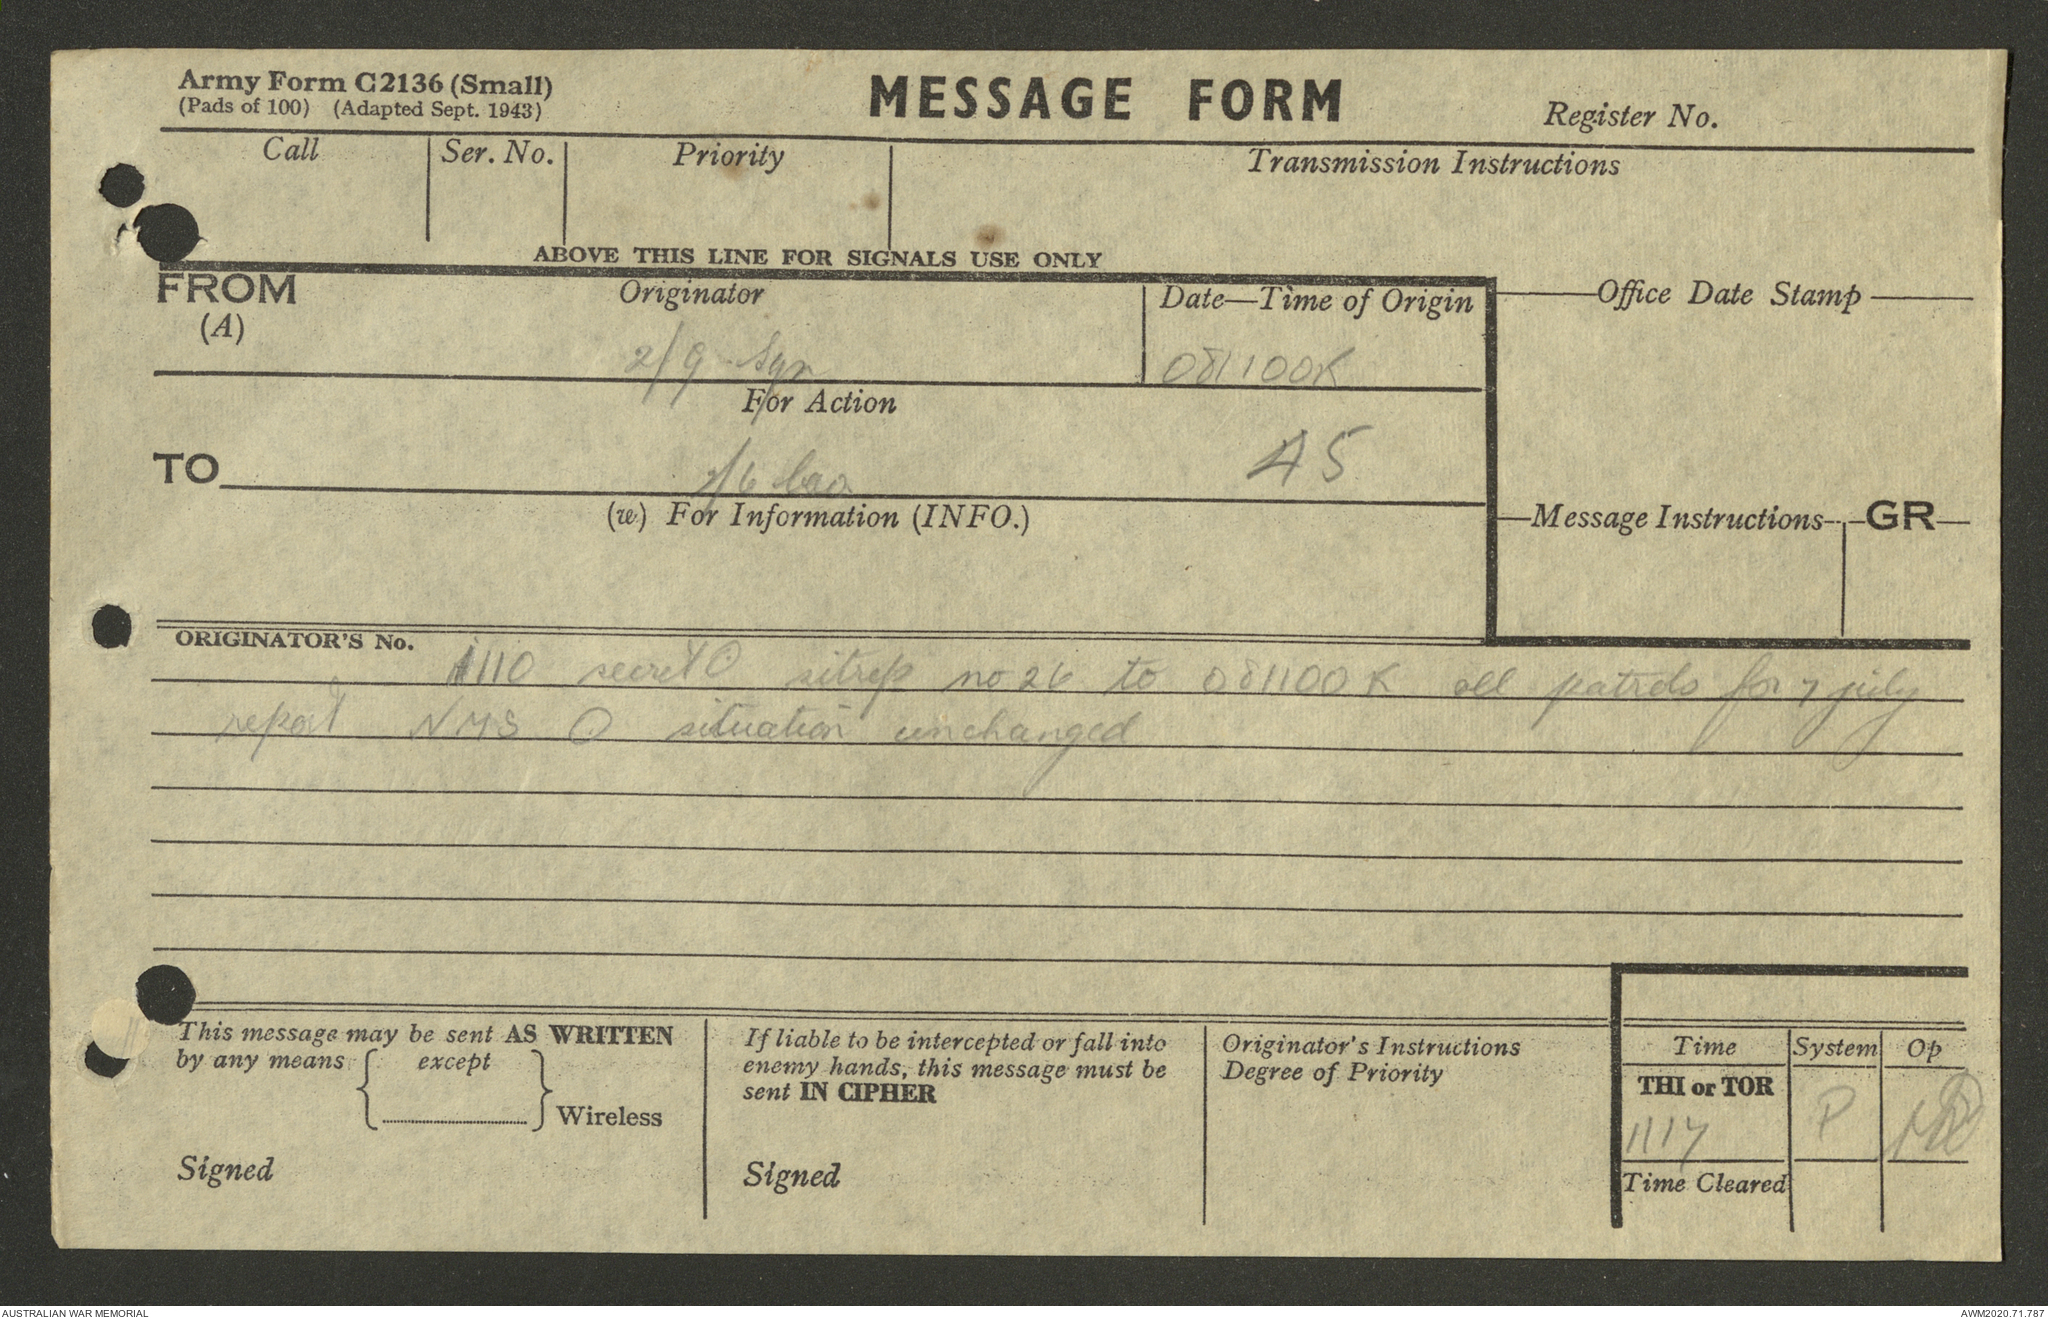 Army Form C2136 (Small)
(Pads of 100) (Adapted Sept. 1943)
MESSAGE FORM
Register No.
Call
Ser. No.
Priority
Transmission Instructions
ABOVE THIS LINE FOR SIGNALS USE ONLY
FROM
(A)
Originator
2/9 Sqn
Date—Time of Origin
081100K
Office Date Stamp
For Action
TO
2/6
45
(w) For Information (INFO.)
Message Instructions
GR
ORIGINATOR'S No.
1110 secret O sitrep no 26 to 081100K all patrols for 7 july
report NMS O situation unchanged
This message may be sent AS WRITTEN
by any means { except } Wireless
Signed
If liable to be intercepted or fall into
enemy hands, this message must be
sent IN CIPHER
Signed
Originator's Instructions
Degree of Priority
Time
System
Op
THI or TOR
1117
P
Time Cleared
AUSTRALIAN WAR MEMORIAL
AWM2020.71.787